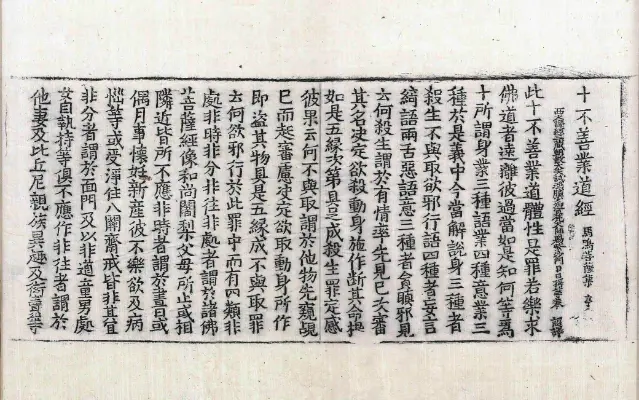 十不善業道經 馬鳴菩薩集
此十不善業道體性是罪若樂求
佛道者遠離彼過當如是知何等爲
十所謂身業三種語業四種意業三
種於是義中今當解說身三種者
殺生不與取欲邪行語四種者妄言
綺語兩舌惡語意三種者貪瞋邪見
云何殺生謂於有情率先見已次審
其名決定欲殺動身施作斷其命根
如是五緣次第具足成殺生罪定感
彼果云何不與取謂於他物先窺覘
已而起審慮決定欲取動身所作
即盜其物具是五緣成不與取罪
云何欲邪行於此罪中而有四類非
處非時非分非往非處者謂於諸佛
菩薩經像和尚闍梨父母所止或相
隣近皆所不應非時者謂於晝日或
偶月事懷姙新産彼不樂欲及病
惱等或受淨住八關齋戒皆非其宜
非分者謂於面門及以非道童男處
女自執持等俱不應作非往者謂於
他妻及比丘尼親族異趣及衒賣等